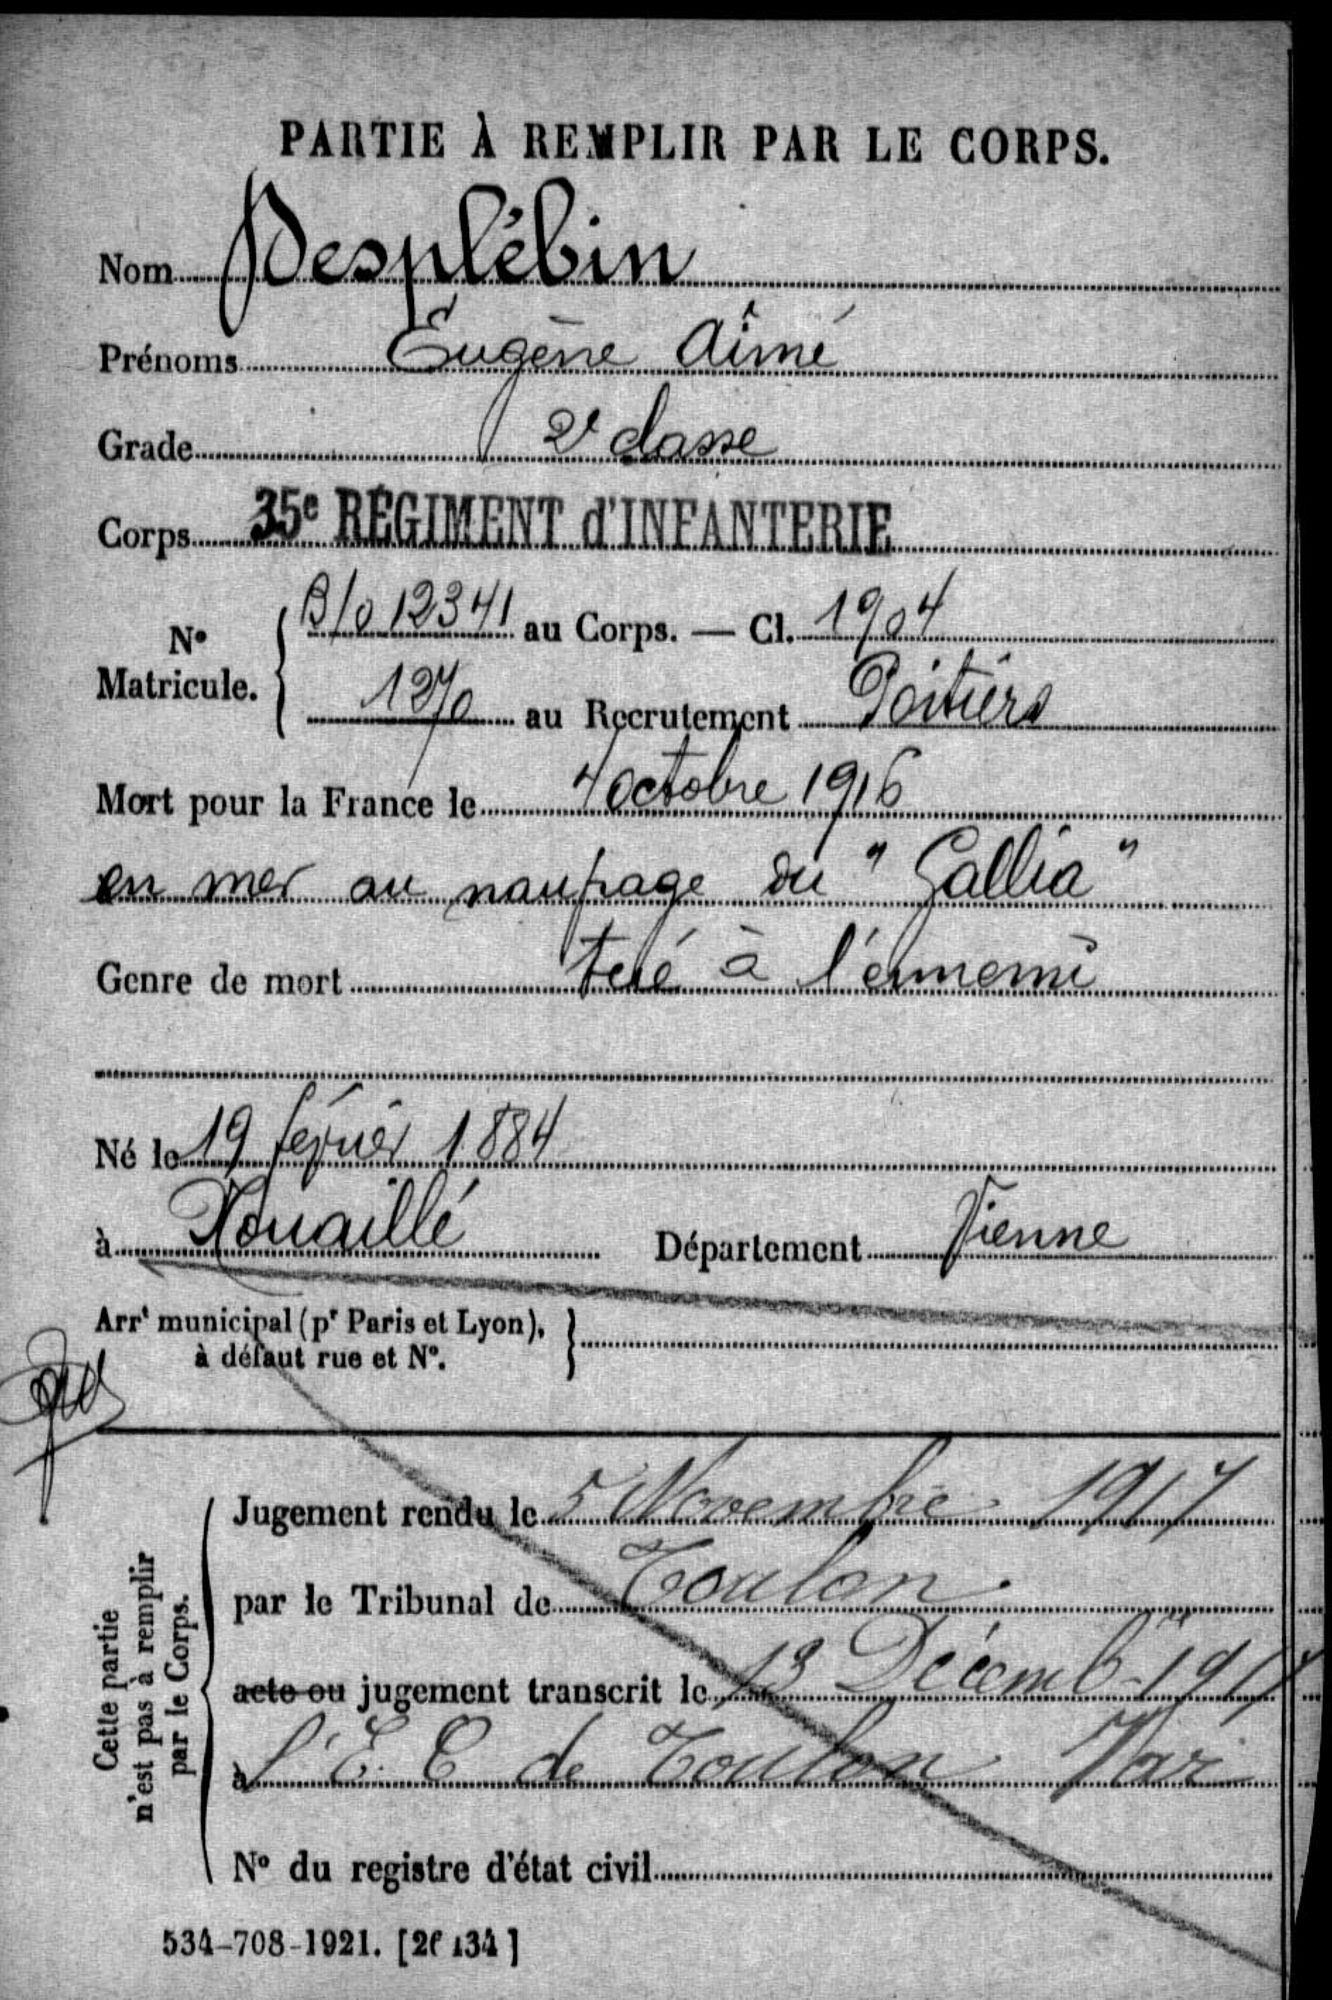 PARTIE À REMPLIR PAR LE CORPS.
Nom Desplébin
Prénoms Eugène Aîmé
Grade 2e classe
Corps 35e RÉGIMENT d'INFANTERIE
No Matricule. 12341 au Corps. — Cl. 1904
1270 au Recrutement Poitiers
Mort pour la France le 4 octobre 1916
en mer au naufrage du "Gallia"
Genre de mort tué à l'ennemi
Né le 19 février 1884
à Nouaillé Département Vienne
Arrt municipal (pr Paris et Lyon),
à défaut rue et No.
Cette partie
n'est pas à remplir
par le Corps.
Jugement rendu le 5 Novembre 1917
par le Tribunal de Toulon
acte ou jugement transcrit le 13 Décemb 1917
à l'E. C de Toulon Var
No du registre d'état civil
534-708-1921.